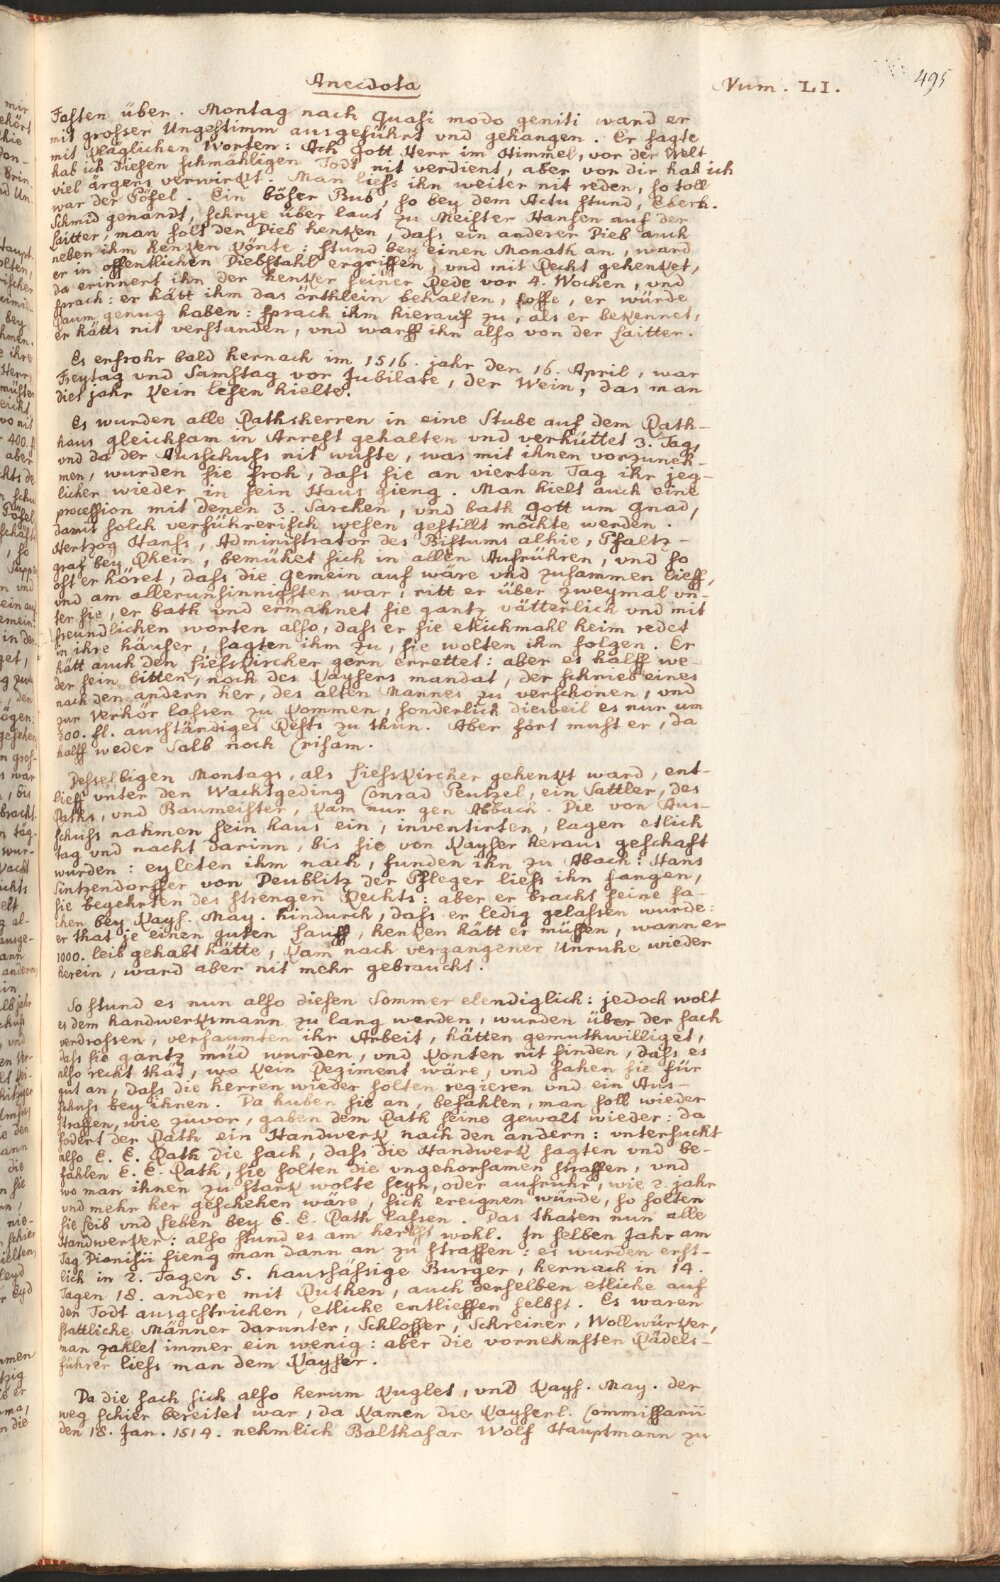 Anecdota
Num. LI.
495
Fasten über. Montag nach Quasi modo geniti ward er
mit grosser Ungestimm ausgeführt vnd gehangen. Er sagte
mit kläglichen Worten: Ach Gott Herr im Himmel, vor der Welt
hab ich diesen schmähligen Todt nit verdient, aber vor dir hab ich
viel ärgers verwirkt. Man liess ihn weiter nit reden, so toll
war der Pöfel. Ein böser Bub, so bey dem Actu stund, Eberh.
Schmid genandt, schrye über laut zu Meister Hansen auf der
Laitter, man soll den Dieb henken, dass ein anderer Dieb auch
neben ihm henken könte: stund bey einen Monath an, ward
er in offentlichen Diebstahl ergriffen, vnd mit Recht gehenket,
da erinnert ihn der Henker seiner Rede vor 4. Wochen, vnd
sprach: er hätt ihm das örthlein behalten, hoffe, er würde
Raum genug haben: sprach ihm hierauf zu, als er bekennet,
er hätts nit verstanden, vnd warff ihn also von der Laitter.
Es erfrohr bald hernach im 1516. jahr den 16. April, war
Freytag vnd Samstag vor Jubilate, der Wein, das man
dies jahr kein lesen hielte.
Es wurden alle Rathsherren in eine Stube auf dem Rath-
haus gleichsam in Arrest gehalten vnd verhüttet 3. Tag,
vnd da der Ausschuss nit wuste, was mit ihnen vorzuneh-
men, wurden sie froh, dass sie an vierten Tag ihr jeg-
licher wieder in sein Haus gieng. Man hielt auch eine
procession mit denen 3. Sarchen, vnd bath Gott um Gnad,
damit solch verführerisch wesen gestillt möchte werden.
Hertzog Hanss, Administrator des Bistums alhie, Pfaltz-
graf bey Rhein, bemühet sich in allen Aufrühren, vnd so
oft er höret, dass die Gemein auf wäre vnd zusammen lieff,
vnd am allerunsinnigsten war, ritt er über zweymal vn-
ter sie, er bath vnd ermahnet sie gantz vätterlich vnd mit
freundlichen worten also, dass er sie etlichmahl heim redet
in ihre häuser, sagten ihm zu, sie wolten ihm folgen. Er
hätt auch den Liesskircher gern errettet: aber es halff we-
der sein bitten, noch des Kaysers mandat, der schrieb eines
nach den andern her, des alten Mannes zu verschonen, vnd
zur Verhör lassen zu kommen, sonderlich dieweil es nur um
300. fl. ausständiges Rests zu thun. Aber fort must er, da
halff weder Salb noch Crisam.
Desselbigen Montags, als Liesskircher gehenkt ward, ent-
lieff vnter den Wachtgeding Conrad Peutzel, ein Sattler, des
Raths, vnd Baumeister, kam nur gen Abbach. Die von Aus-
schuss nahmen sein haus ein, inventirten, lagen etlich
tag vnd nacht darinn, bis sie von Kayser heraus geschaft
wurden: eyleten ihm nach, funden ihn zu Abach: Hans
Sintzendorffer von Teublitz der Pfleger liess ihn fangen,
sie begehrten des strengen Rechts: aber er bracht seine sa-
chen bey Kays. May. hindurch, dass er ledig gelassen wurde:
er that je einen guten Lauff, henken hätt er müssen, wann er
1000. leib gehabt hätte, kam nach vergangener Unruhe wieder
herein, ward aber nit mehr gebraucht.
So stund es nun also diesen Sommer elendiglich: jedoch wolt
es dem handwerksmann zu lang werden, wurden über der sach
verdrossen, versaumten ihr Arbeit, hätten gemuthwilliget,
dass sie gantz müd wurden, vnd konten nit finden, dass es
also recht that, wo kein Regiment wäre, vnd sahen sie für
gut an, dass die Herren wieder solten regieren vnd ein Aus-
schuss bey ihnen. Da huben sie an, befahlen, man soll wieder
straffen, wie zuvor, gaben dem Rath seine gewalt wieder: da
fodert der Rath ein Handwerk nach den andern: vntersucht
also E. E. Rath die sach, dass die Handwerk sagten vnd be-
fahlen E. E. Rath, sie solten die vngehorsamen straffen, vnd
wo man ihnen zu stark wolte seyn, oder aufruhr, wie 2. jahr
vnd mehr her geschehen wäre, sich ereignen würde, so solten
sie Leib vnd Leben bey E. E. Rath lassen. Das thaten nun alle
Handwerker: also stund es am herbst wohl. In selben Jahr am
Tag Dionisii fieng man dann an zu straffen: es wurden erst-
lich in 2. Tagen 5. haussässige Burger, hernach in 14.
Tagen 18. andere mit Ruthen, auch derselben etliche auf
den Todt ausgestrichen, etliche entlieffen selbst. Es waren
stattliche Männer darunter, Schlosser, Schreiner, Wollwürker,
man zahlet immer ein wenig: aber die vornehmsten Rädels-
führer liess man dem Kayser.
Da die sach sich also herum kuglet, vnd Kays. May. der
weg schier bereitet war, da kamen die Kayserl. Commissarii
den 18. Jan. 1514. nehmlich Balthasar Wolf Hauptmann zu